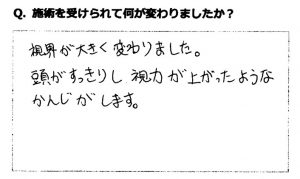 Q. 施術を受けられて何が変わりましたか？
視界が大きく変わりました。
頭がすっきりし 視力が上がったような
かんじがします。